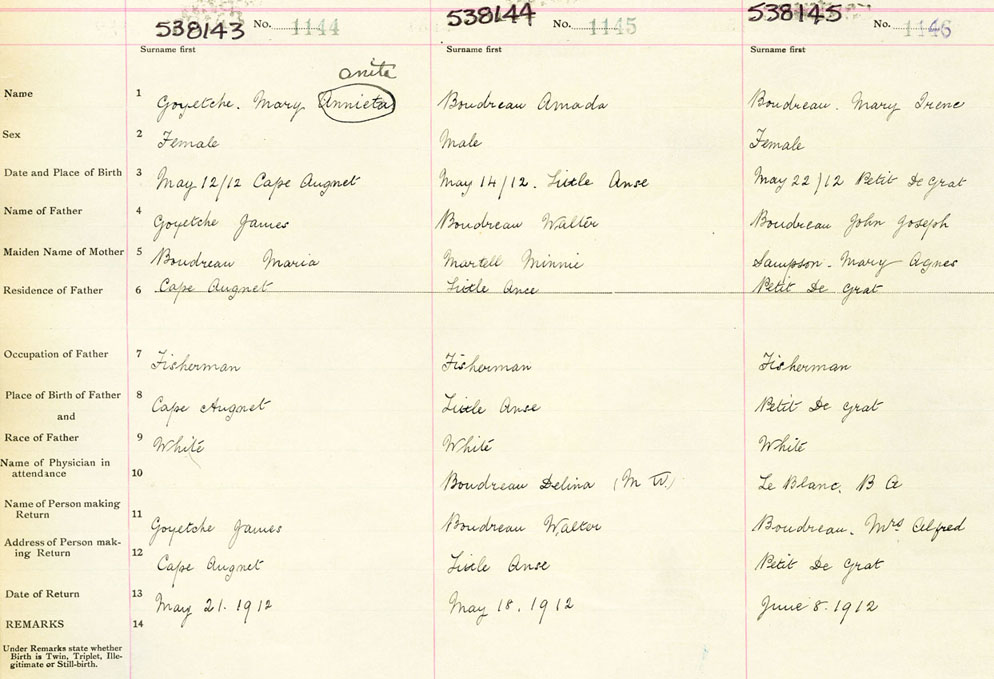 538143 No. 1144 538144 No. 1145 538145 No. 1146
Surname first Surname first Surname first
anita
Name 1 Goyetche. Mary Annieta Boudreau Amada Boudreau. Mary Irene
Sex 2 Female Male Female
Date and Place of Birth 3 May 12/12 Cape Augnet May 14/12. Little Anse May 22/12 Petit De Grat
Name of Father 4 Goyetche James Boudreau Walter Boudreau John Joseph
Maiden Name of Mother 5 Boudreau Maria Martell Minnie Sampson - Mary Agnes
Residence of Father 6 Cape Augnet Little Ance Petit De Grat
Occupation of Father 7 Fisherman Fisherman Fisherman
Place of Birth of Father 8 Cape Augnet Little Anse Petit De Grat
and
Race of Father 9 White White White
Name of Physician in
attendance 10 Boudreau Delina (M W.) Le Blanc. B A
Name of Person making
Return 11 Goyetche James Boudreau Walter Boudreau. Mrs Alfred
Address of Person mak-
ing Return 12 Cape Augnet Little Anse Petit De Grat
Date of Return 13 May 21. 1912 May 18. 1912 June 8. 1912
REMARKS 14
Under Remarks state whether
Birth is Twin, Triplet, Ille-
gitimate or Still-birth.